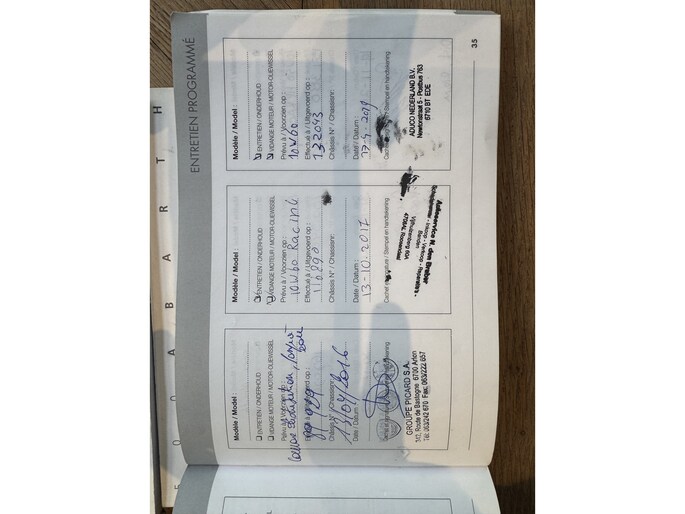 ENTRETIEN PROGRAMMÉ
Modèle / Model :
ENTRETIEN / ONDERHOUD
VIDANGE MOTEUR / MOTOR-OLIEWISSEL
Prévu à / Voorzien op :
Effectué à / Uitgevoerd op :
Châssis N° / Chassisnr:
Date / Datum :
13/04/2016
Cachet et signature / Stempel en handtekening
GROUPE PICARD S.A.
343, Route de Bastogne 6700 Arlon
Tél. 063/242 670 Fax. 063/222 657
Modèle / Model :
ENTRETIEN / ONDERHOUD
VIDANGE MOTEUR / MOTOR-OLIEWISSEL
Prévu à / Voorzien op :
10W60 Racing
Effectué à / Uitgevoerd op :
116890
Châssis N° / Chassisnr:
Date / Datum :
13-10-2017
Cachet et signature / Stempel en handtekening
Autoservice N. den Braber
Inkoop - Verkoop - Reparaties
Modèle / Model :
ENTRETIEN / ONDERHOUD
VIDANGE MOTEUR / MOTOR-OLIEWISSEL
Prévu à / Voorzien op :
10W60
Effectué à / Uitgevoerd op :
132043
Châssis N° / Chassisnr:
Date / Datum :
Cachet et signature / Stempel en handtekening
ADUCO NEDERLAND B.V.
Newtonstraat 5 - Postbus 763
6710 BT EDE
35